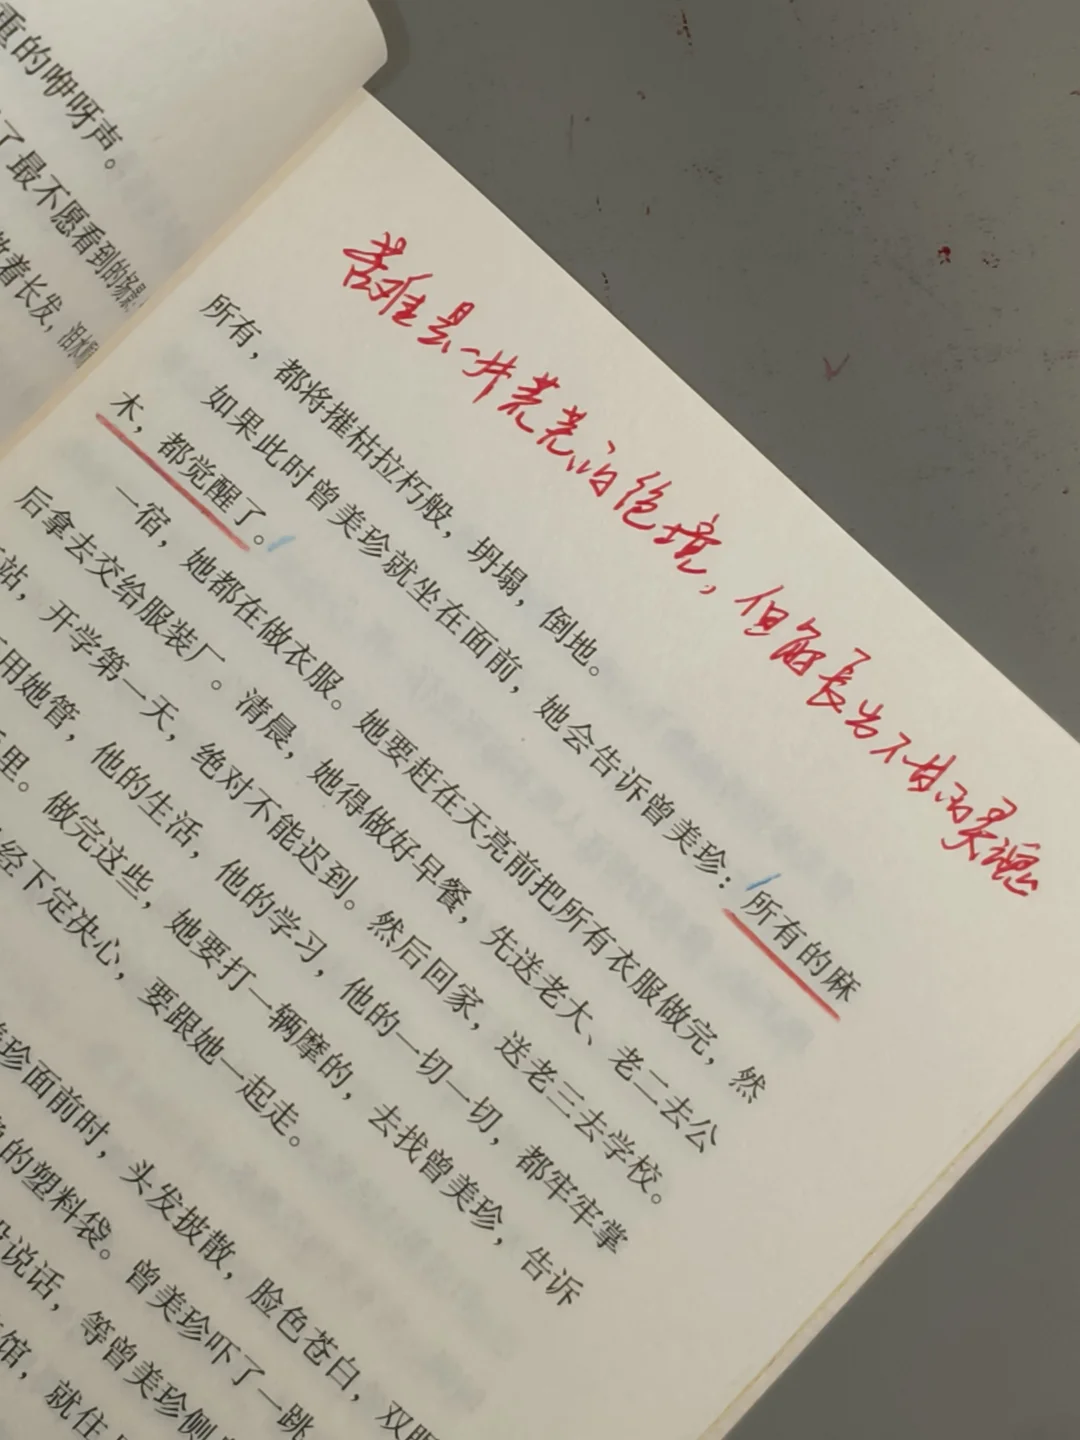 重的咿呀声。
了最不愿看到的场景
着长发，泪水
苦难是一井荒芜的绝境，但能长出不甘的灵魂
所有，都将摧枯拉朽般，坍塌，倒地。
如果此时曾美珍就坐在面前，她会告诉曾美珍：所有的麻
木，都觉醒了。
一宿，她都在做衣服。她要赶在天亮前把所有衣服做完，然
后拿去交给服装厂。清晨，她得做好早餐，先送老大、老二去公
站，开学第一天，绝对不能迟到。然后回家，送老三去学校。
用她管，他的生活，他的学习，他的一切一切，都牢牢掌
里。做完这些，她要打一辆摩的，去找曾美珍，告诉
经下定决心，要跟她一起走。
珍面前时，头发披散，脸色苍白，双眼
的塑料袋。曾美珍吓了一跳
说话，等曾美珍侧
馆，就住